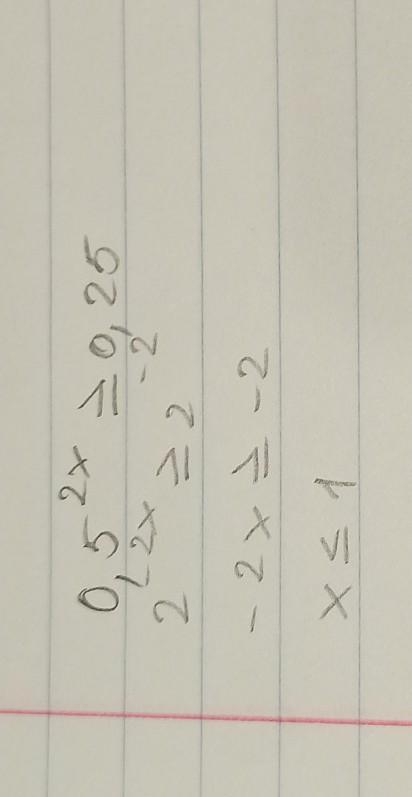 0,5^{2x} ≥ 0,25
2^{-2x} ≥ 2^{-2}
-2x ≥ -2
x ≤ 1